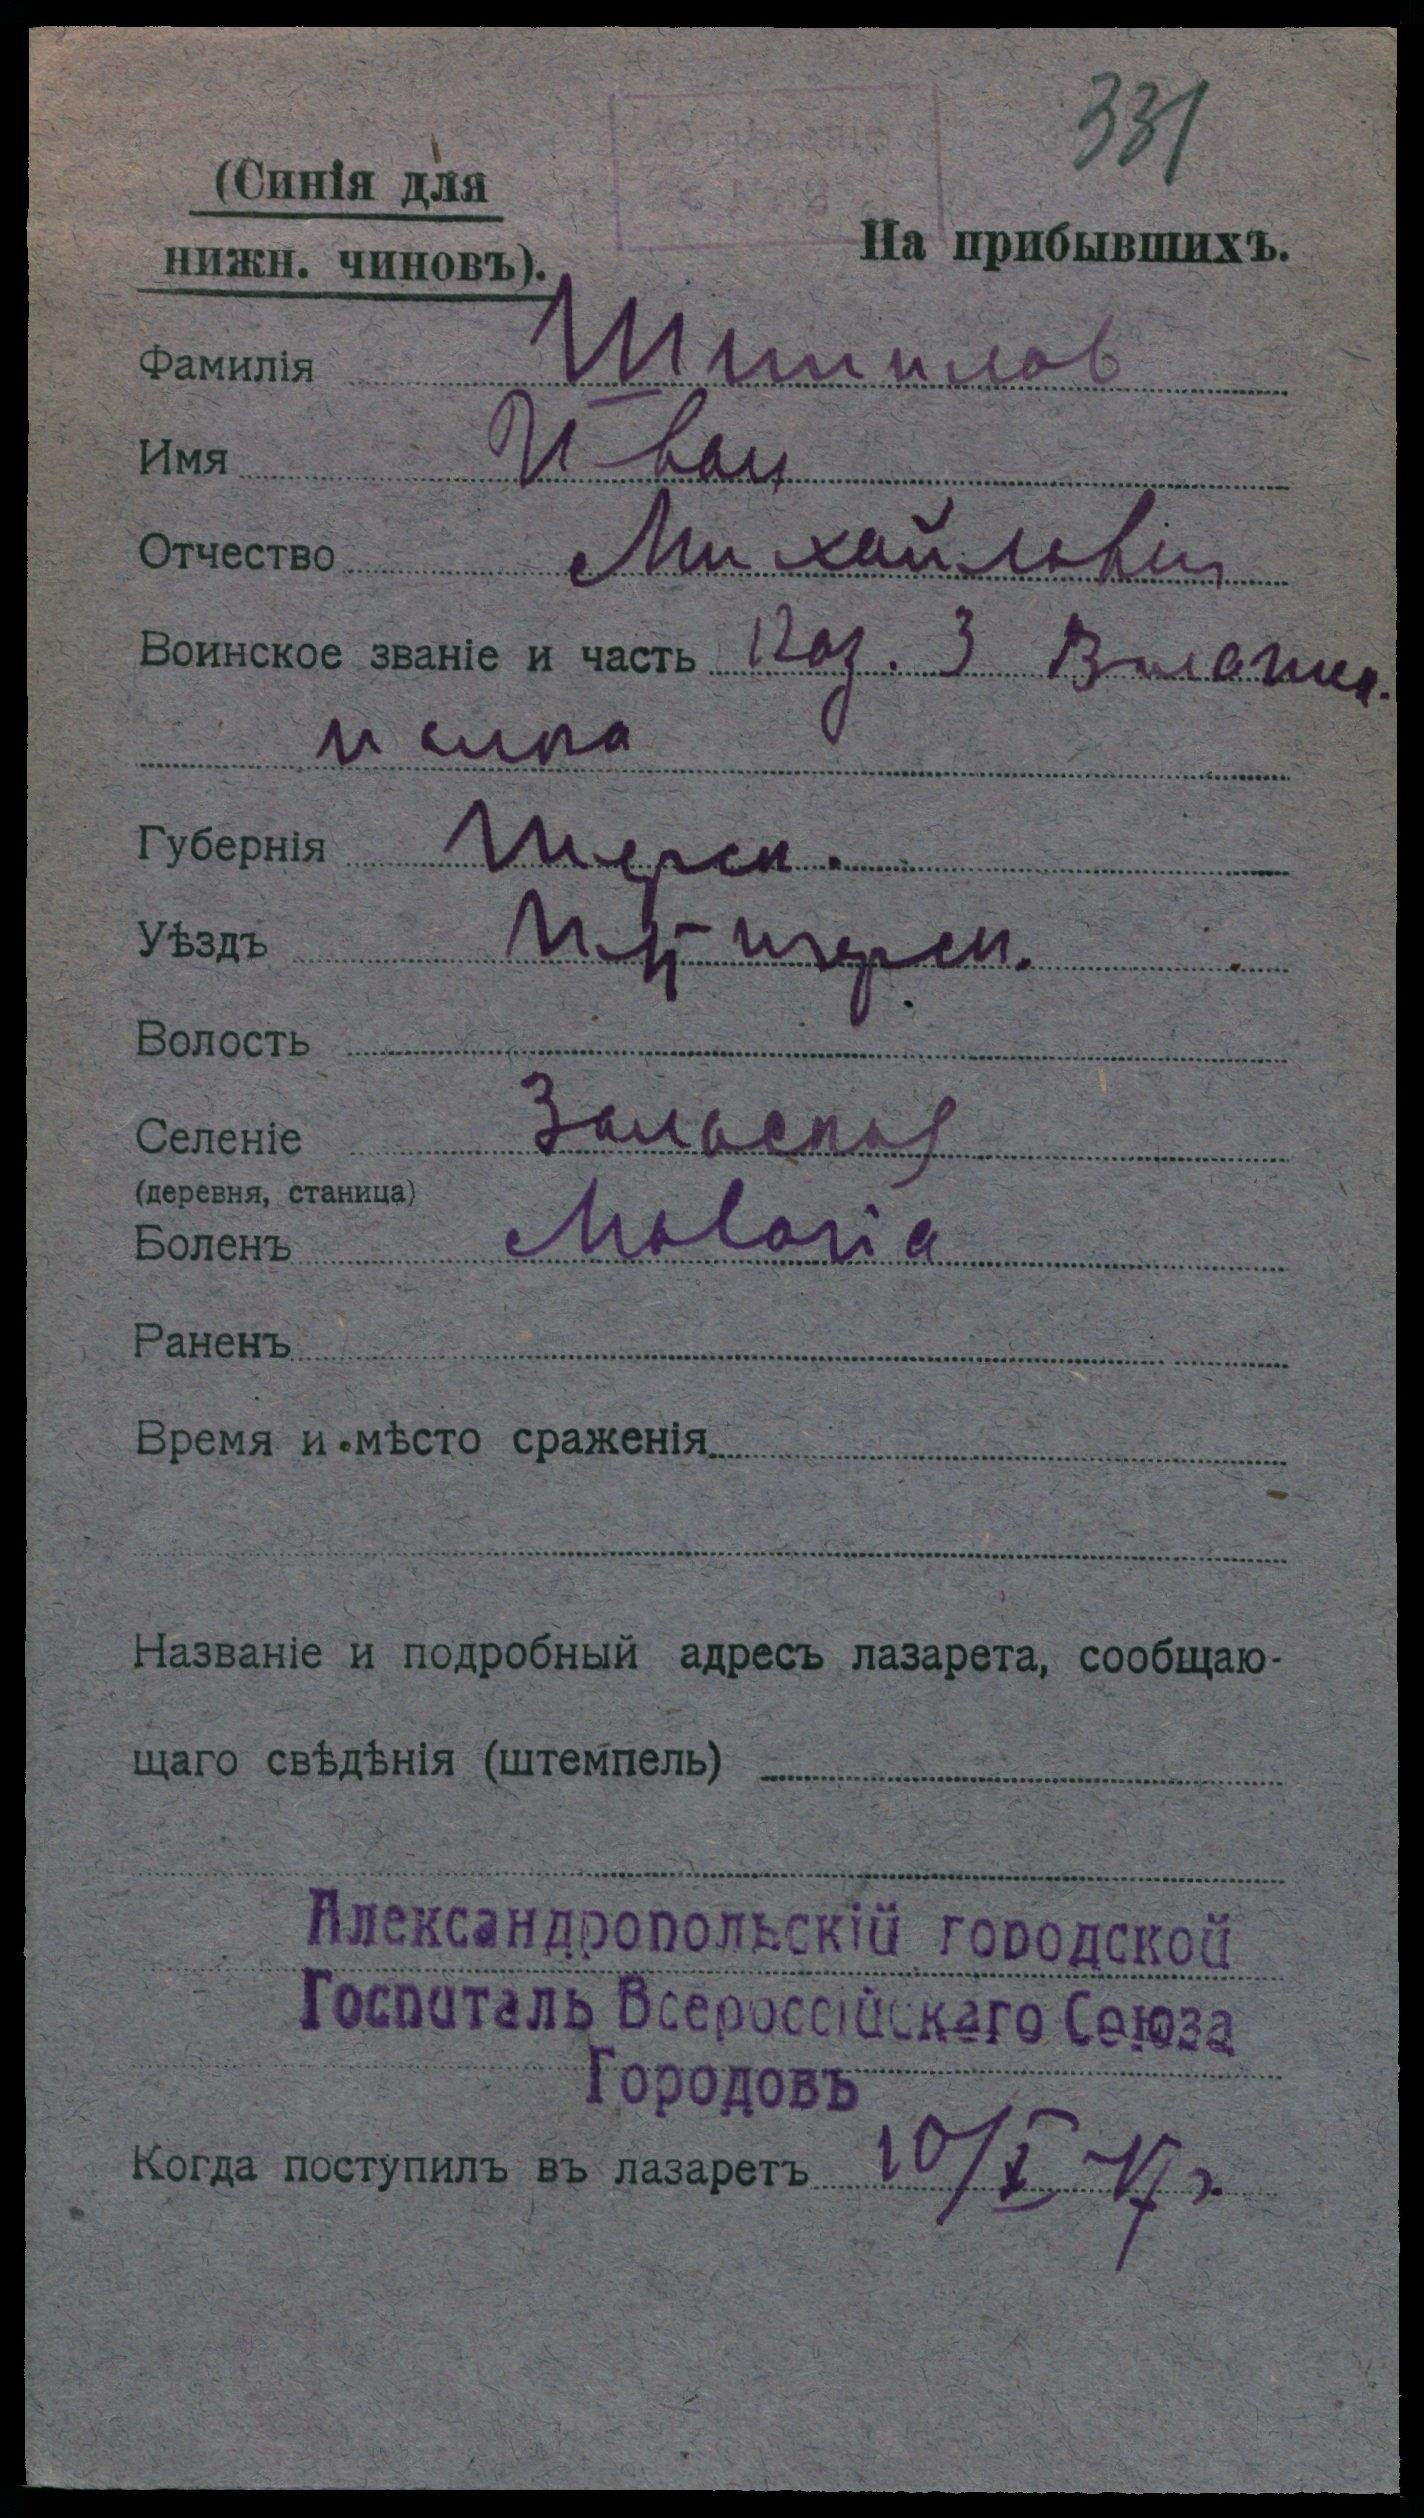 331
(Синія для
нижн. чиновъ).
На прибывшихъ.
Фамилія Шипилов
Имя Иван
Отчество Михайлович
Воинское званіе и часть Каз. 3
Губернія Терск.
Уѣздъ
Волость
Селеніе
(деревня, станица)
Боленъ Malaria
Раненъ
Время и мѣсто сраженія
Названіе и подробный адресъ лазарета, сообщаю-
щаго свѣдѣнія (штемпель)
Александропольскій городской
Госпиталь Всероссійскаго Союза
Городовъ
Когда поступилъ въ лазаретъ 10/X 17 г.